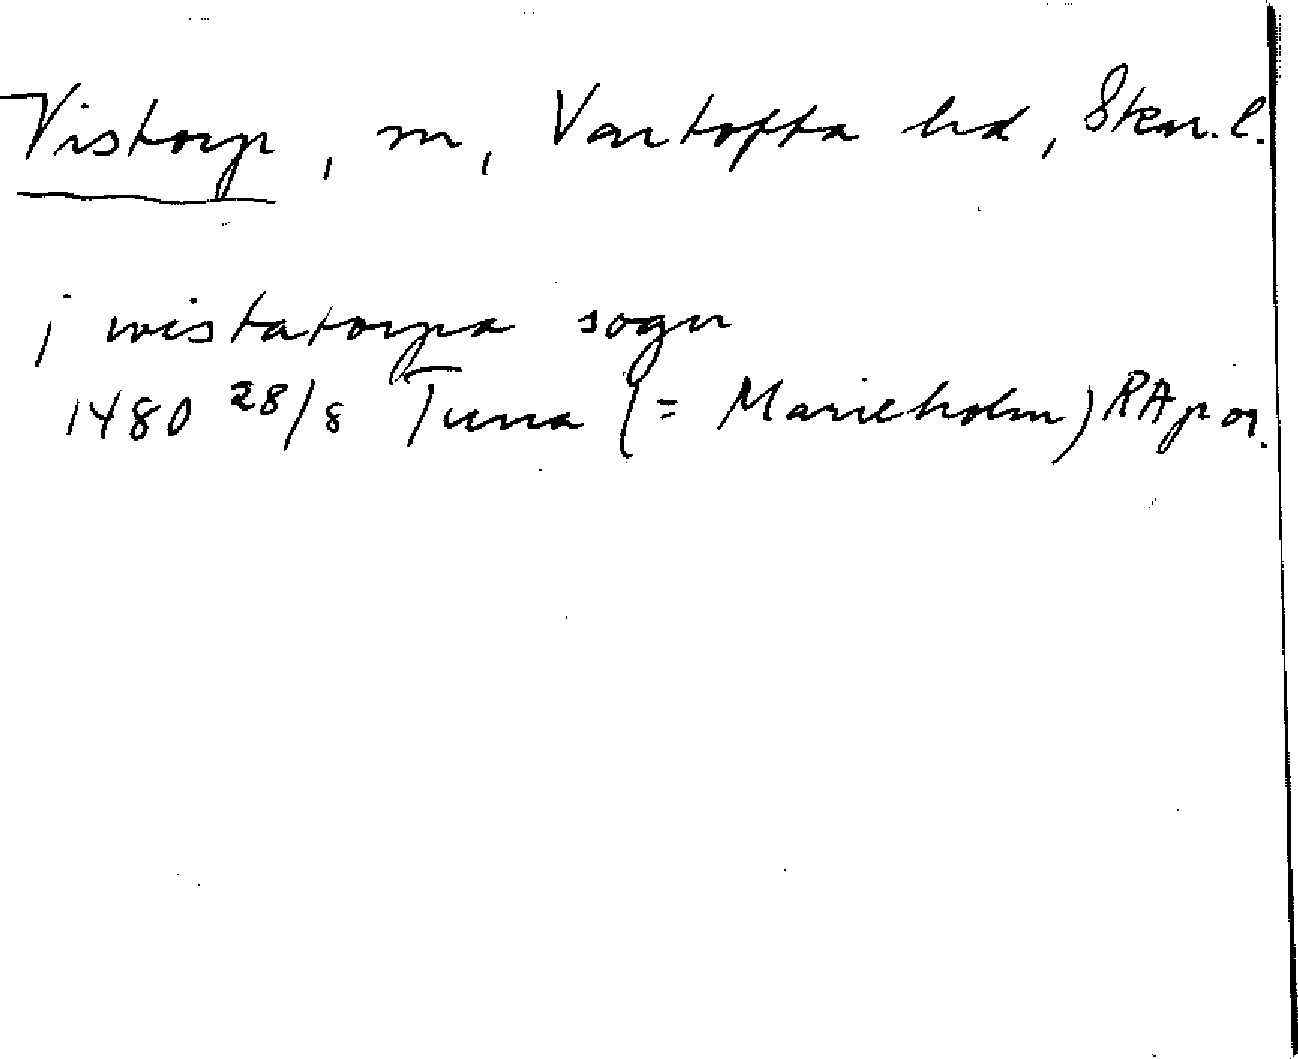 Vistorp, sn, Vartofta hd, Skar. l.
j wistatorpa sogn
1480 28/8 Tuna (= Marieholm) RAp or.